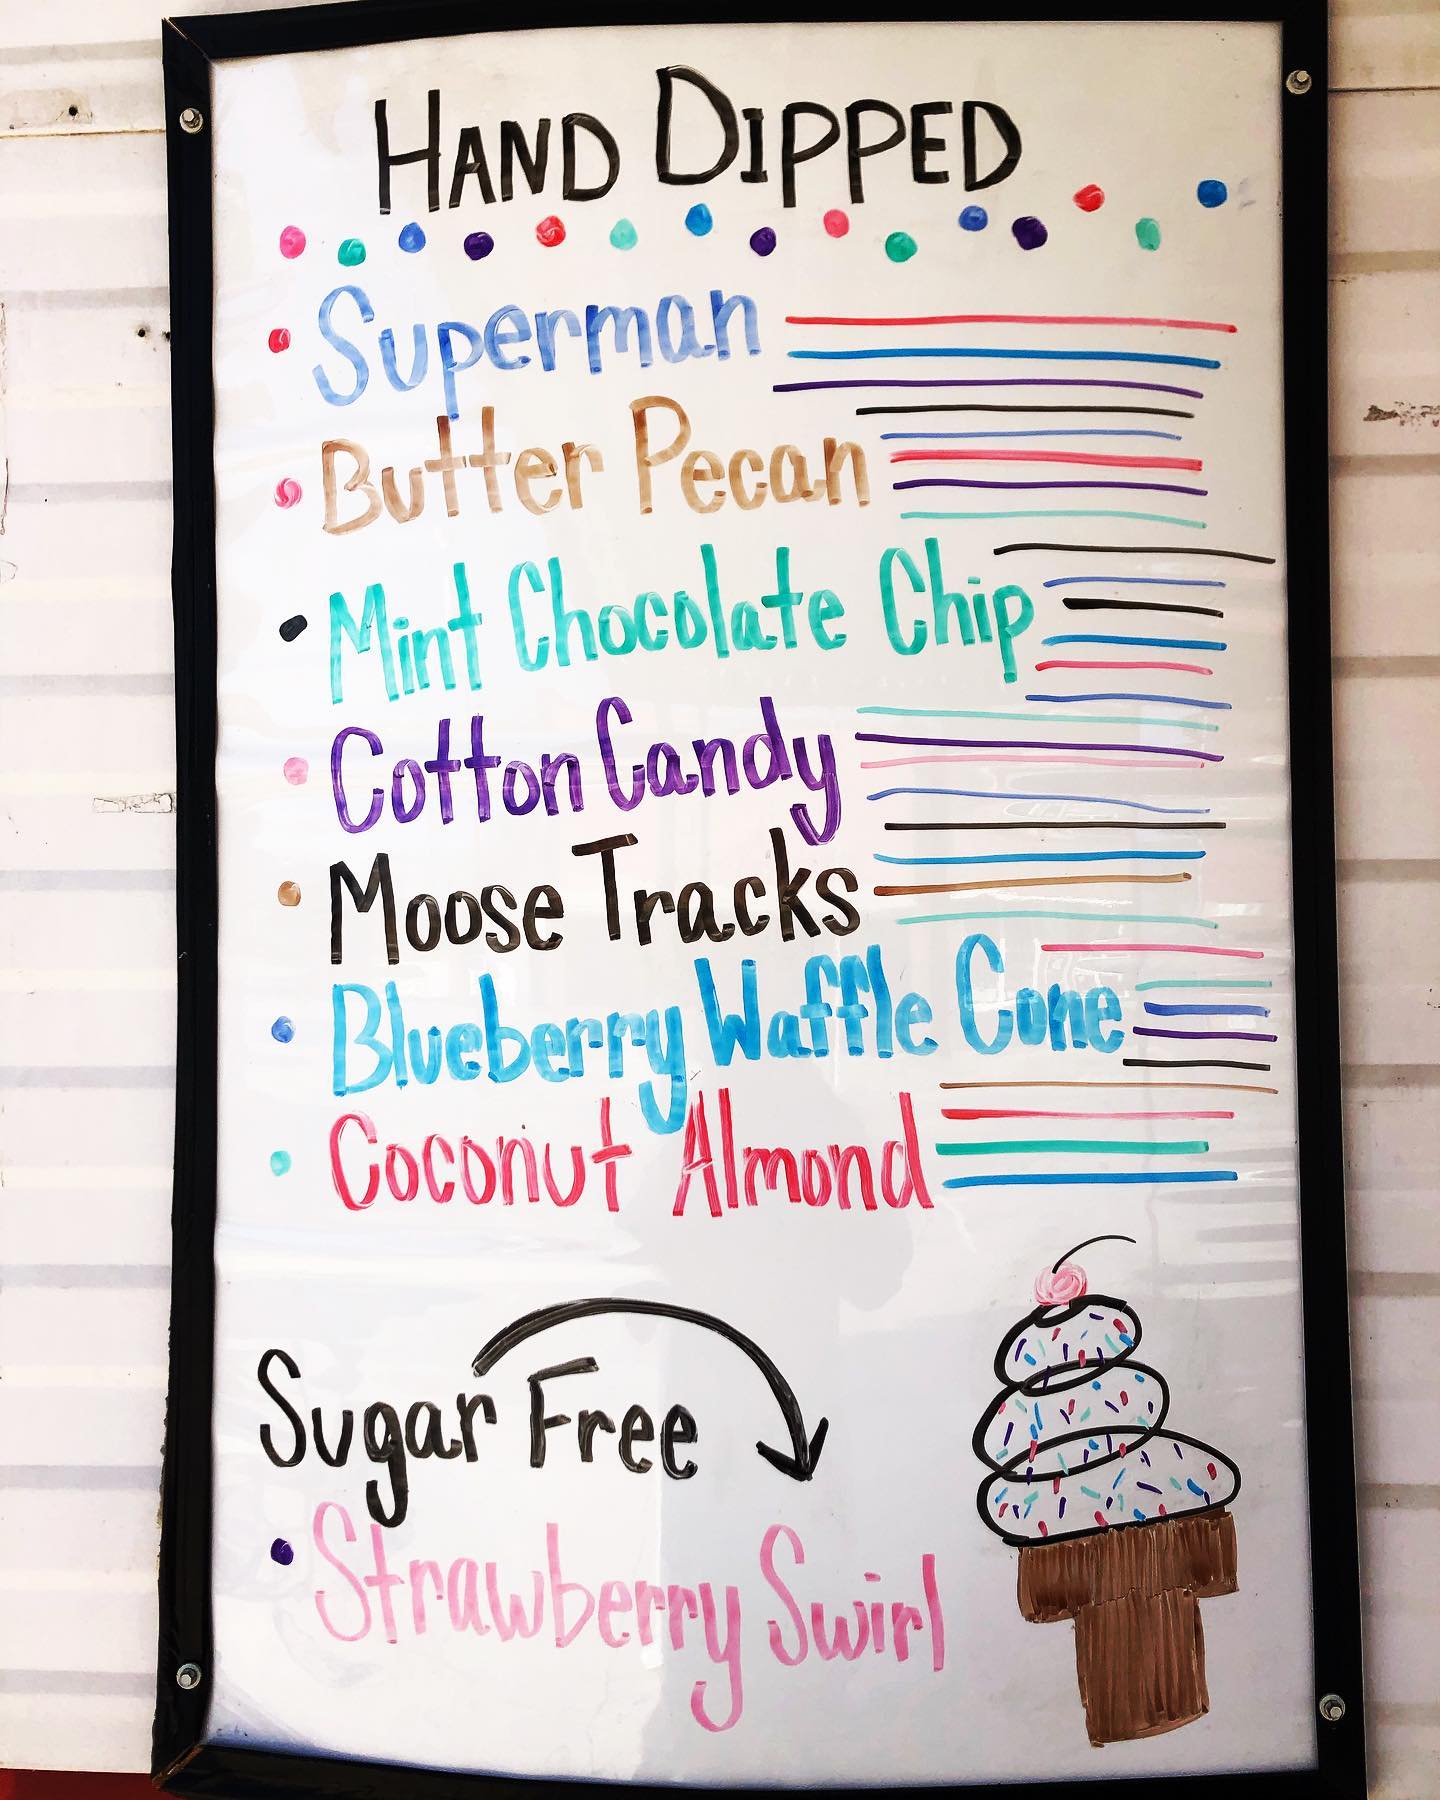 HAND DIPPED
Superman
Butter Pecan
Mint Chocolate Chip
Cotton Candy
Moose Tracks
Blueberry Waffle Cone
Coconut Almond
Sugar Free
Strawberry Swirl